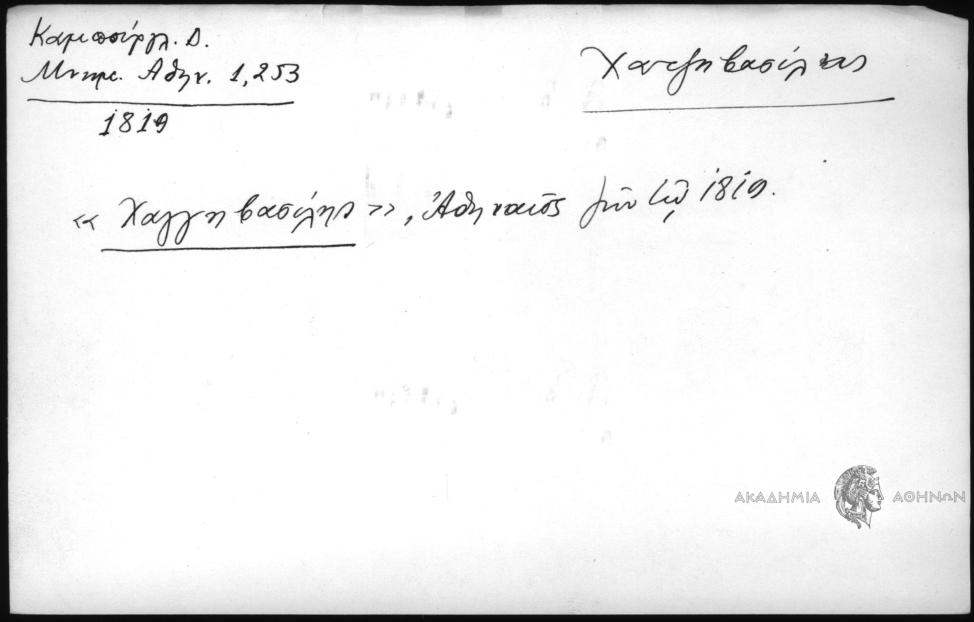 Καμπούργλ. Δ.
Μνημ. Ἀθην. 1,253
1819
Χατζηβασίλης
« Χαγγηβασίλης », Ἀθηναῖος ζῶν τῷ 1819.
ΑΚΑΔΗΜΙΑ ΑΘΗΝΩΝ